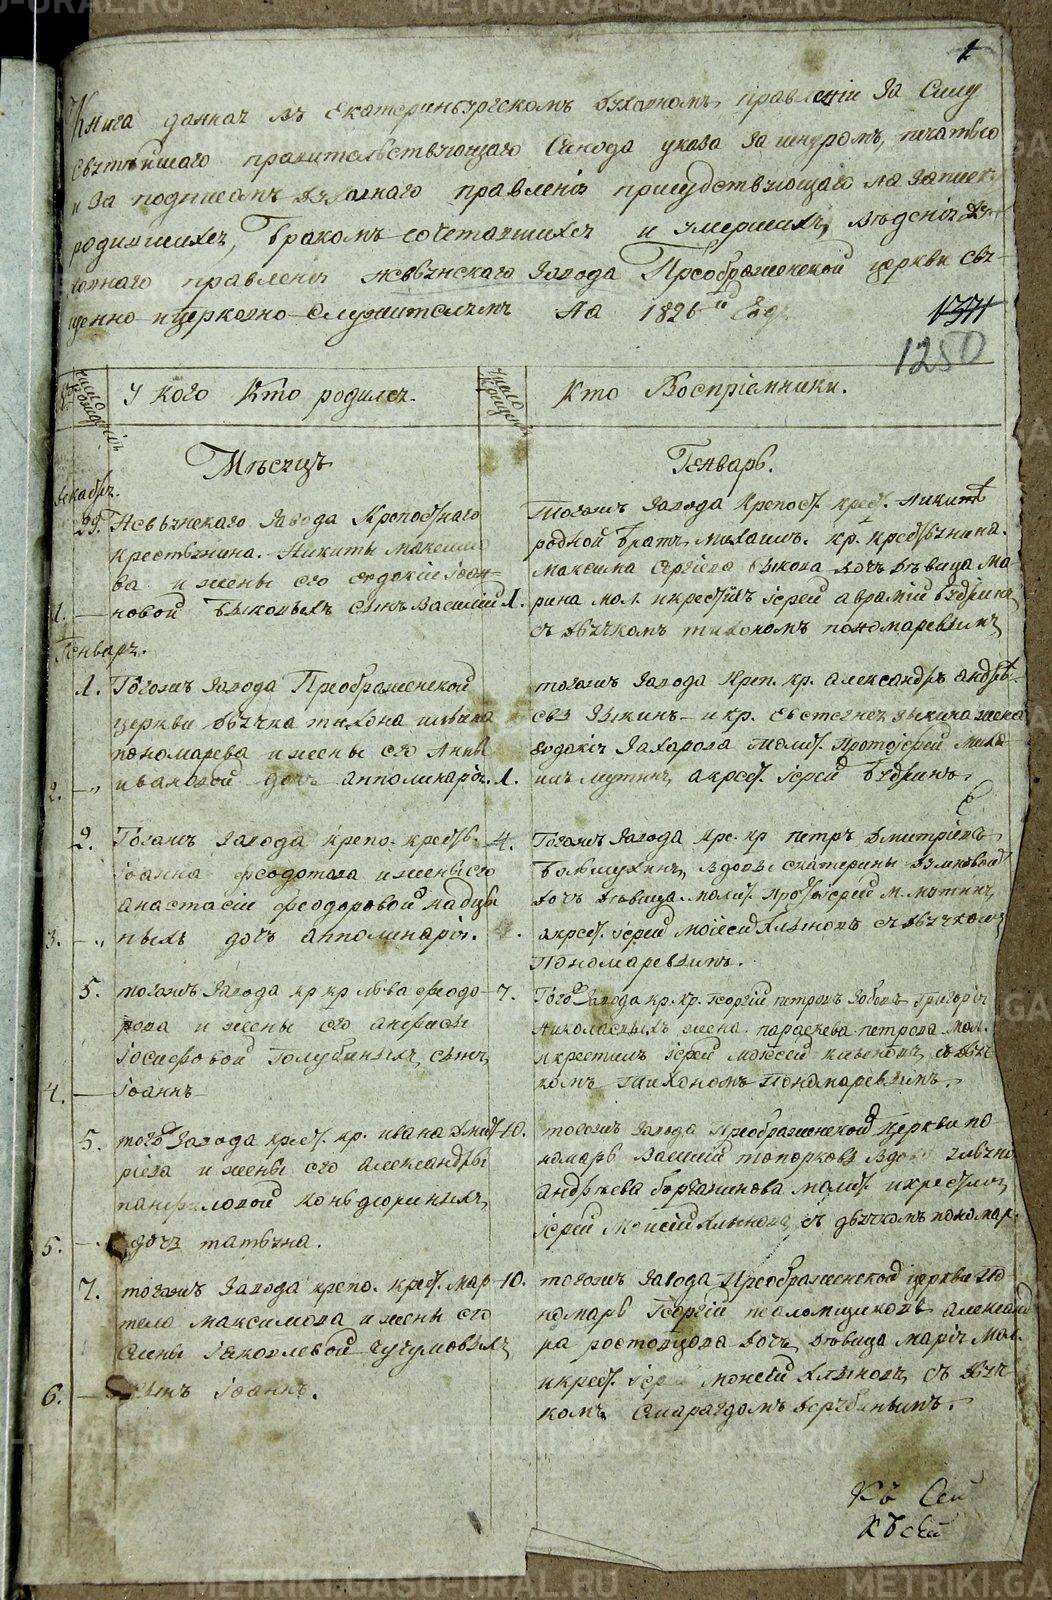 METRIKI.GASU-URAL.RU
1
Книга данная въ Екатеринбургскомъ духовномъ правленіи За Силу
Святѣйшаго правительствующаго Синода указа За шнуромъ, печатью
и За подписомъ духовнаго правленія присудствующаго на записку
родившихся, бракомъ сочетавшихся и умершихъ, вѣденія ду-
ховнаго правленія Невьянскаго Завода Преображенской церкви свя-
щенно и церковно-Служителямъ На 1826й Годъ
1250
число рожденія
У кого Кто родился.
число крещенія
Кто Воспріемники.
Мѣсяцъ
Генварь.
Декабрь.
29.
Невьянскаго Завода Крепостнаго
крестьянина Никиты Максимо
ва и жены его Евдокіи Іоан-
1. — новой Быковыхъ сынъ Василій
1.
тогожъ Завода Крепост. крест. Никиты
родной братъ Михаилъ. кр. крестьянина.
Максима Сергіева Быкова дочь дѣвица Ма-
рина мол. и крестилъ іерей Аврамій Будринъ
съ дьячкомъ Тихономъ Пономаревымъ
Генварь.
1.
Тогожъ Завода Преображенской
церкви дьячка Тихона
пономарева и жены его Анны
2. — Ивановой дочь Апполинарія.
1.
тогожъ Завода Креп. кр. Александръ Андрѣ-
евъ Зыкинъ и кр. Евстегнея Зыкина жена
Евдокія Захарова молит. Протоіерей Миха-
илъ Мутинъ, а крест. іерей Будринъ.
2.
Тогожъ Завода крепо. крестья.
Іоанна Феодотова и жены его
Анастасіи Феодоровой
3. — ныхъ дочь Апполинарія.
4.
Тогожъ Завода кре. кр Петръ Дмитріевъ
вдовы Екатерины
дочь дѣвица. молит. Протоіерей М. Мутинъ,
а крест. іерей Моисей Хлыновъ съ дьячкомъ
Пономаревымъ.
5.
тогожъ Завода кр кр Льва Феодо-
рова и жены его Анфисы
Іосифовой Голубиныхъ, сынъ,
4. — Іоаннъ
7.
Того Завода кр. кр. Георгій Петровъ Зобовъ Григорія
Николаевыхъ жена Параскева Петрова мол.
и крестилъ іерей Моисей Хлыновъ, съ дья-
комъ Тихономъ Пономаревымъ.
5.
того Завода крест. кр. Ивана Дмит-
ріева и жены его Александры
Панфиловой
5. — дочь Татьяна.
10.
тогожъ Завода Преображенской Церкви по-
номарь Василій Топорковъ вдова
Андрѣева молит. и крестилъ,
іерей Моисей Хлыновъ, съ дьячкомъ пономар.
7.
тогожъ Завода крепо. крест. Мар-
тела Максимова и жены его
Елены Іаковлевой
6. — сынъ Іоаннъ.
10.
тогожъ Завода Преображенской церкви по
номарь Георгій Псаломщиковъ Александ
ра Ростовцова дочь, дѣвица Марія мол.
и крест. іерей Моисей Хлыновъ, съ дья-
комъ Смарагдомъ Дерябинымъ.
Къ Сей
Къ сей